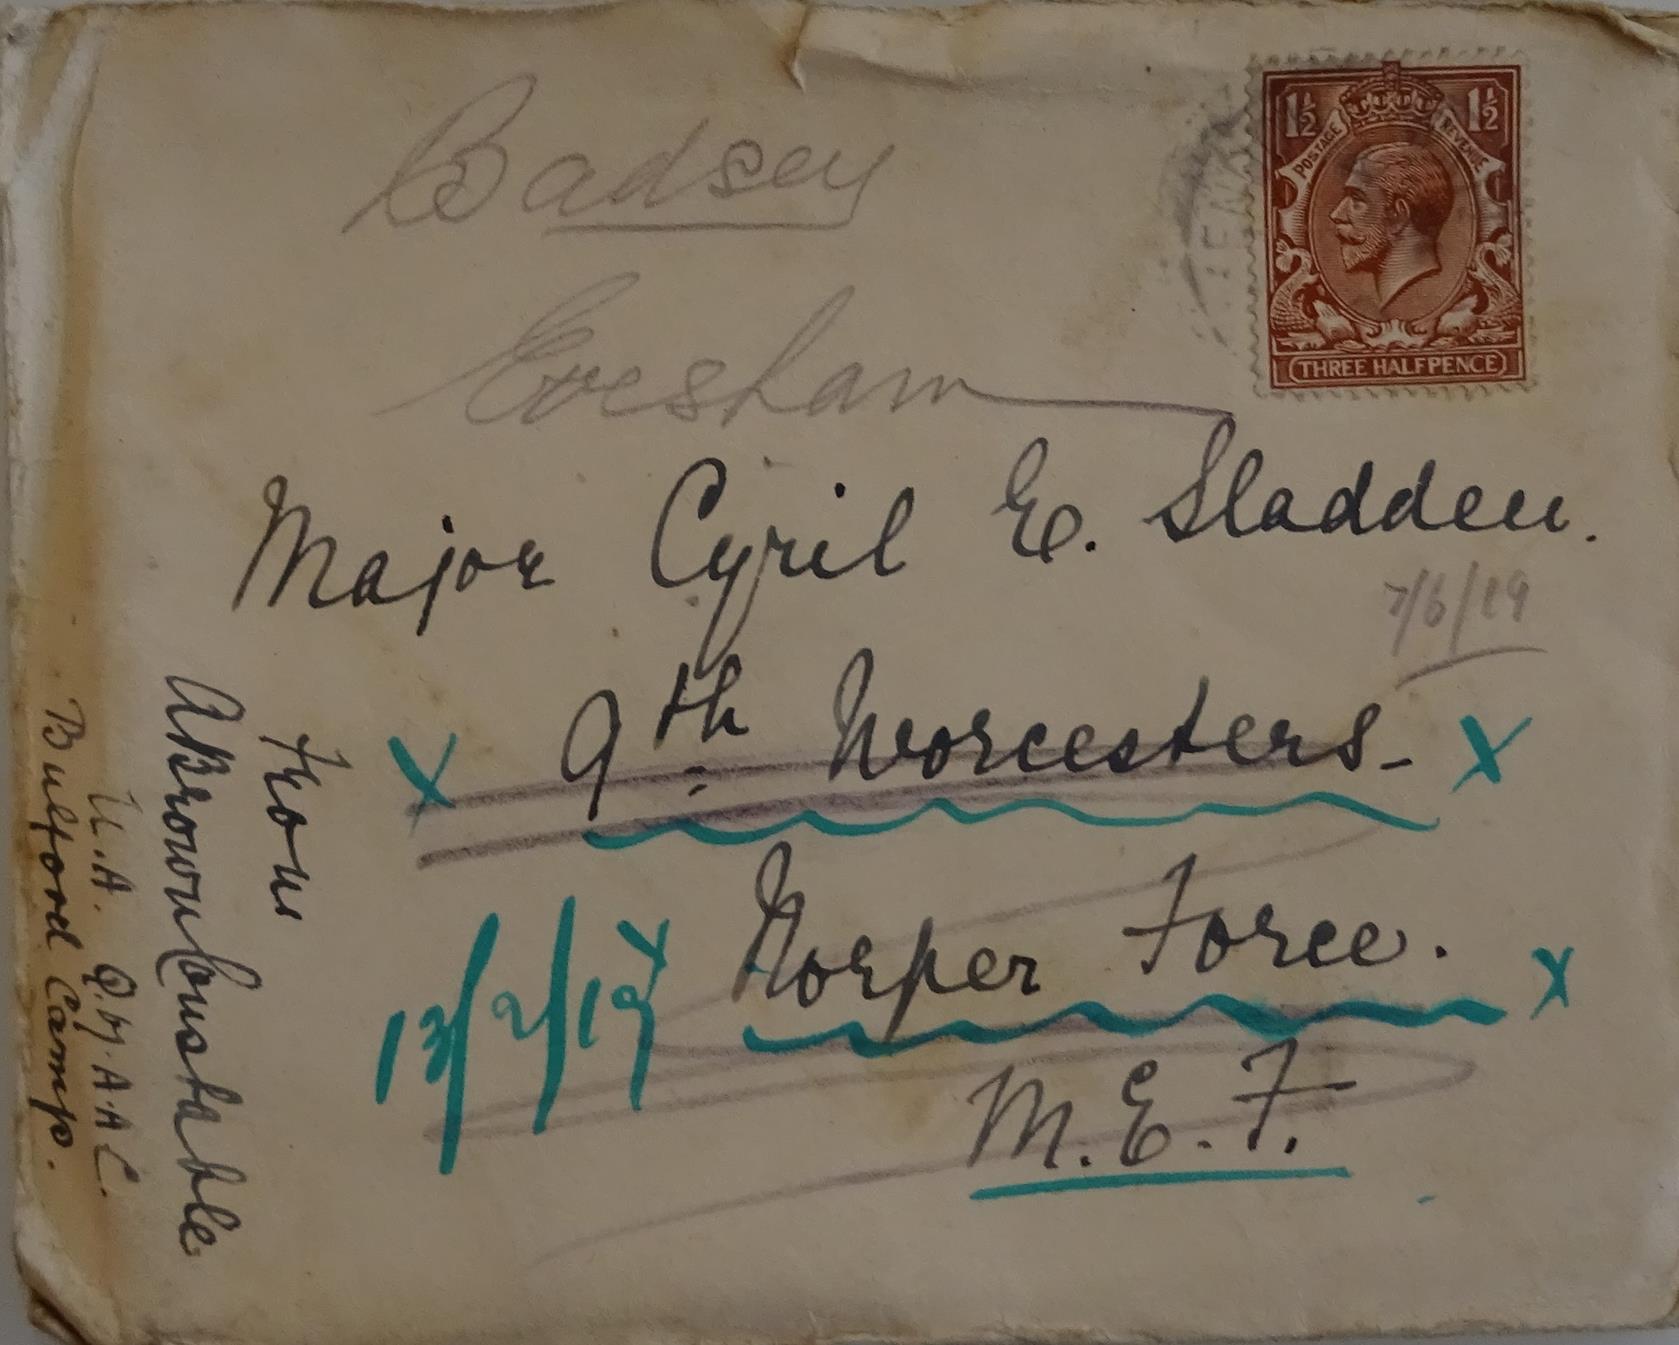 Badsey
Evesham
1½ 1½
POSTAGE REVENUE
THREE HALFPENCE
Major Cyril E. Sladden.
7/6/19
x 9th Worcesters- x
13/2/19 x Norper Force. x
M.E.F.
From
ABrown Constable
U.A. Q.M.A.A.C.
Bulford Camp.